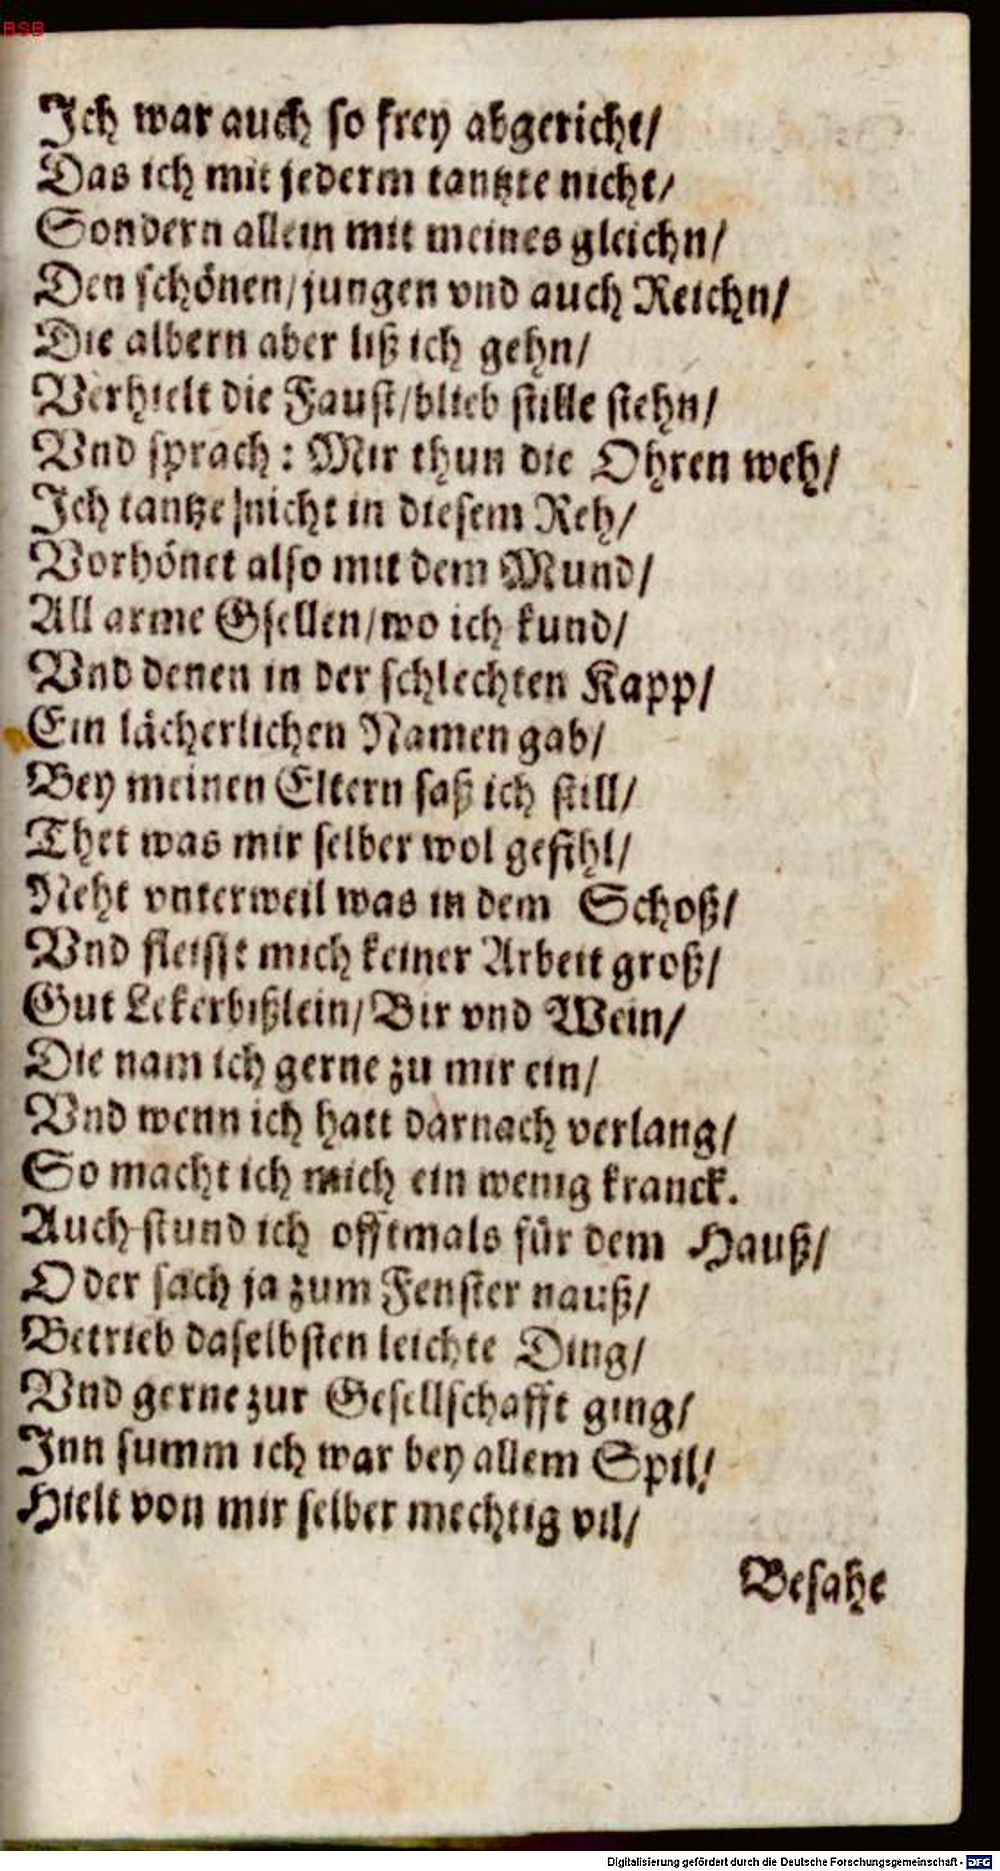 BSB
Ich war auch so frey abgericht/
Das ich mit jederm tantzte nicht/
Sondern allein mit meines gleichn/
Den schönen/jungen vnd auch Reichn/
Die albern aber liß ich gehn/
Verhielt die Faust/blieb stille stehn/
Vnd sprach: Mir thun die Ohren weh/
Ich tantze nicht in diesem Reh/
Vorhönet also mit dem Mund/
All arme Gsellen/wo ich kund/
Vnd denen in der schlechten Kapp/
Ein lächerlichen Namen gab/
Bey meinen Eltern saß ich still/
Thet was mir selber wol gefihl/
Neht vnterweil was in dem Schoß/
Vnd fleisst mich keiner Arbeit groß/
Gut Lekerbißlein/Bir vnd Wein/
Die nam ich gerne zu mir ein/
Vnd wenn ich hatt darnach verlang/
So macht ich mich ein wenig kranck.
Auch stund ich offtmals für dem Hauß/
Oder sach ja zum Fenster nauß/
Betrieb daselbsten leichte Ding/
Vnd gerne zur Gesellschafft ging/
Inn summ ich war bey allem Spil/
Hielt von mir selber mechtig vil/
Besahe
Digitalisierung gefördert durch die Deutsche Forschungsgemeinschaft - DFG